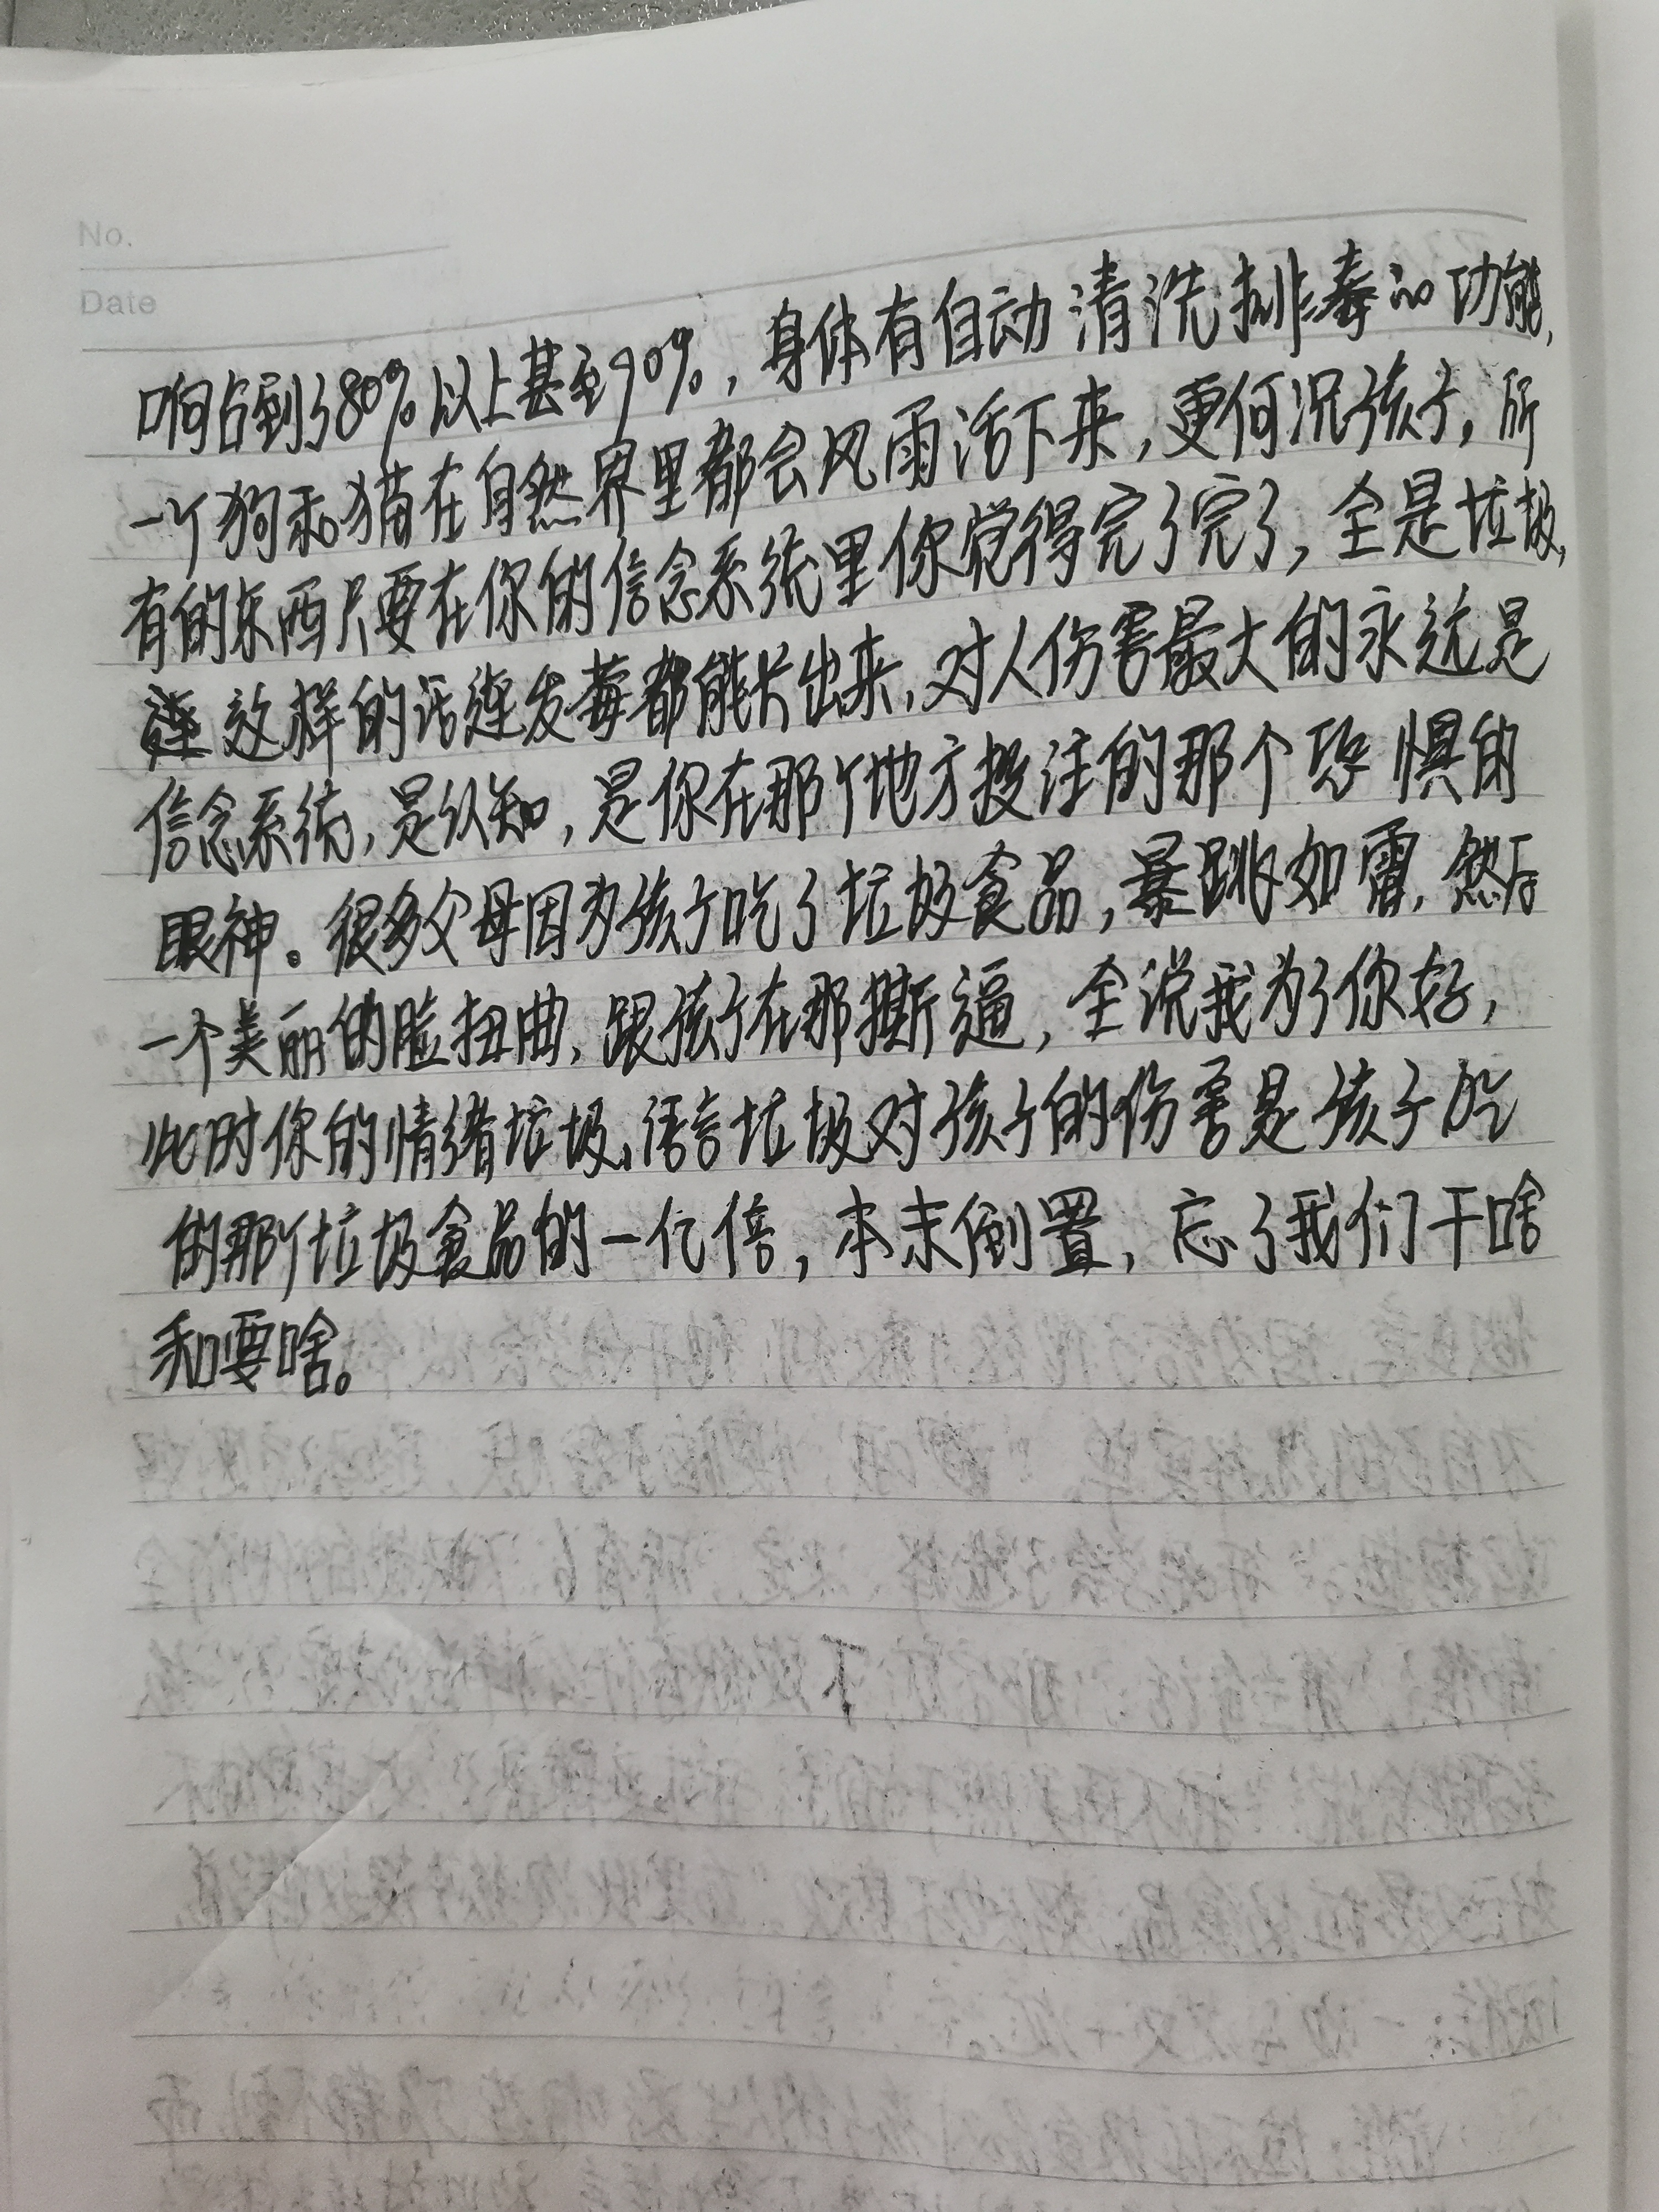 No.
Date
响占到了80%以上甚至90%，身体有自动清洗排毒的功能，
一个狗和猫在自然界里都会风雨活下来，更何况孩子，所
有的东西只要在你的信念系统里你觉得完了完了，全是垃圾，
这样的话连发莓都能长出来，对人伤害最大的永远是
信念系统，是认知，是你在那个地方投注的那个恐惧的
眼神。很多父母因为孩子吃了垃圾食品，暴跳如雷，然后
一个美丽的脸扭曲，跟孩子在那撕逼，全说我为了你好，
此时你的情绪垃圾、语言垃圾对孩子的伤害是孩子吃
的那个垃圾食品的一亿倍，本末倒置，忘了我们干啥
和要啥。